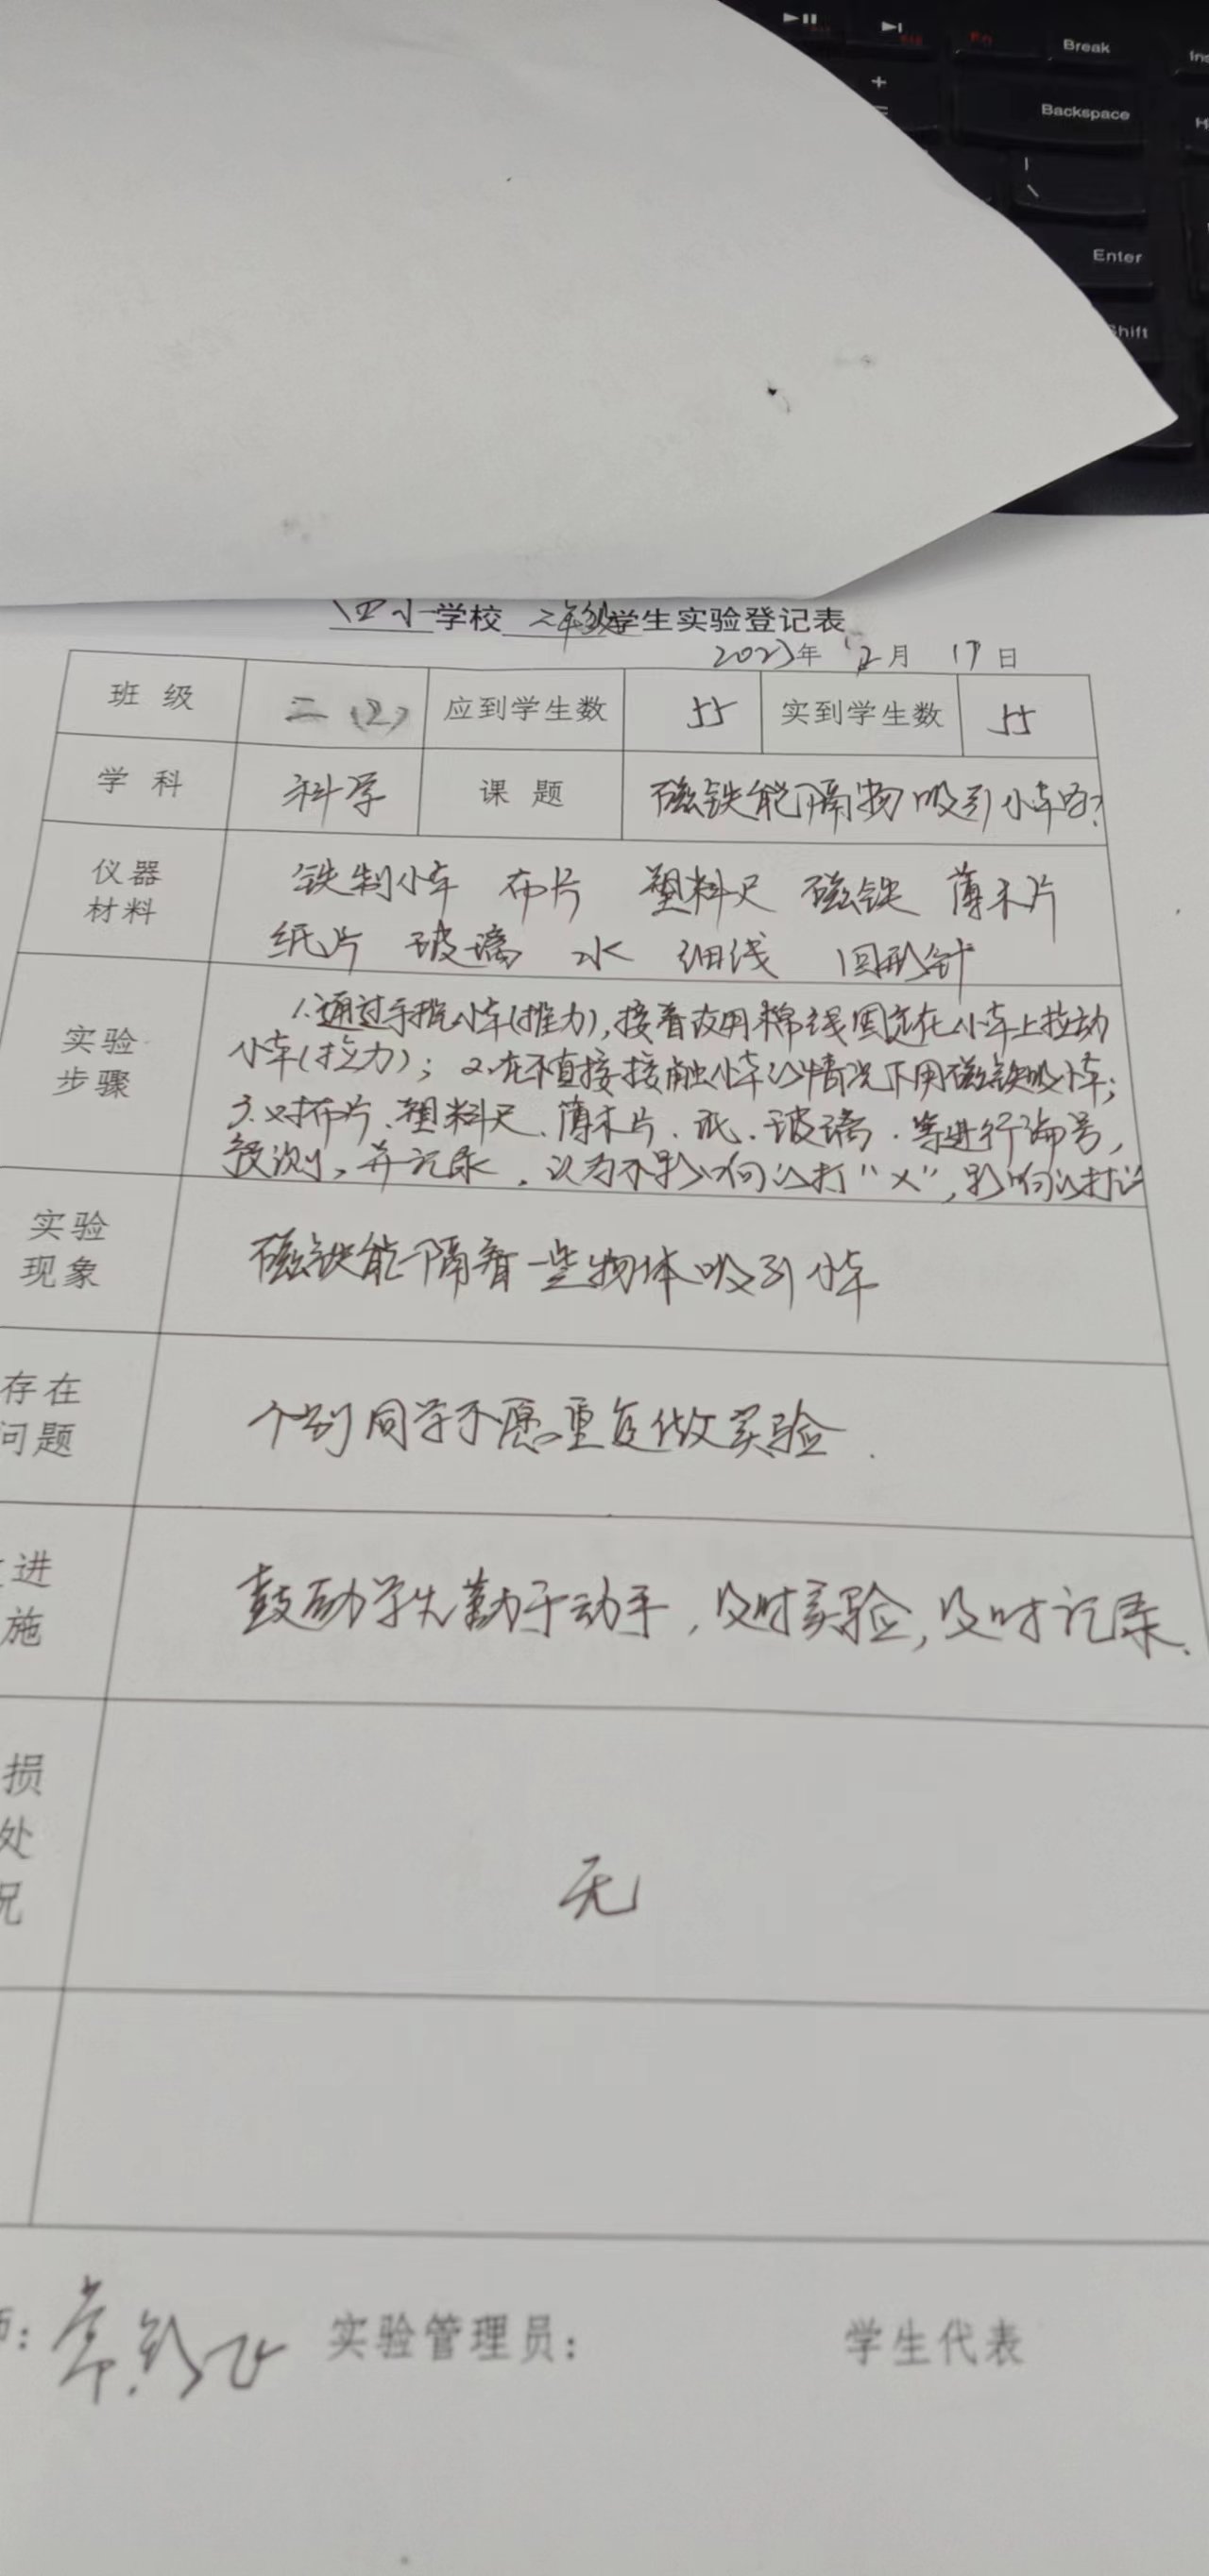 Break
Backspace
Enter
Shift
四小学校二年级学生实验登记表
2023年12月17日
班级 二(2) 应到学生数 55 实到学生数 55
学科 科学 课题 磁铁能隔物吸引小车吗?
仪器材料
铁制小车 布片 塑料尺 磁铁 薄木片
纸片 玻璃 水 细线 回形针
实验步骤
1.通过手推小车(推力),接着改用棉线固定在小车上拉动
小车(拉力); 2.在不直接接触小车的情况下用磁铁吸小车;
3.对布片、塑料尺、薄木片、纸、玻璃、等进行编号,
预测,并记录,认为不影响的打“×”,影响的打
实验现象
磁铁能隔着一些物体吸引小车
存在问题
个别同学不愿重复做实验.
进
施
鼓励学生勤于动手,及时实验,及时记录.
损
处
况
无
师: 常 实验管理员: 学生代表